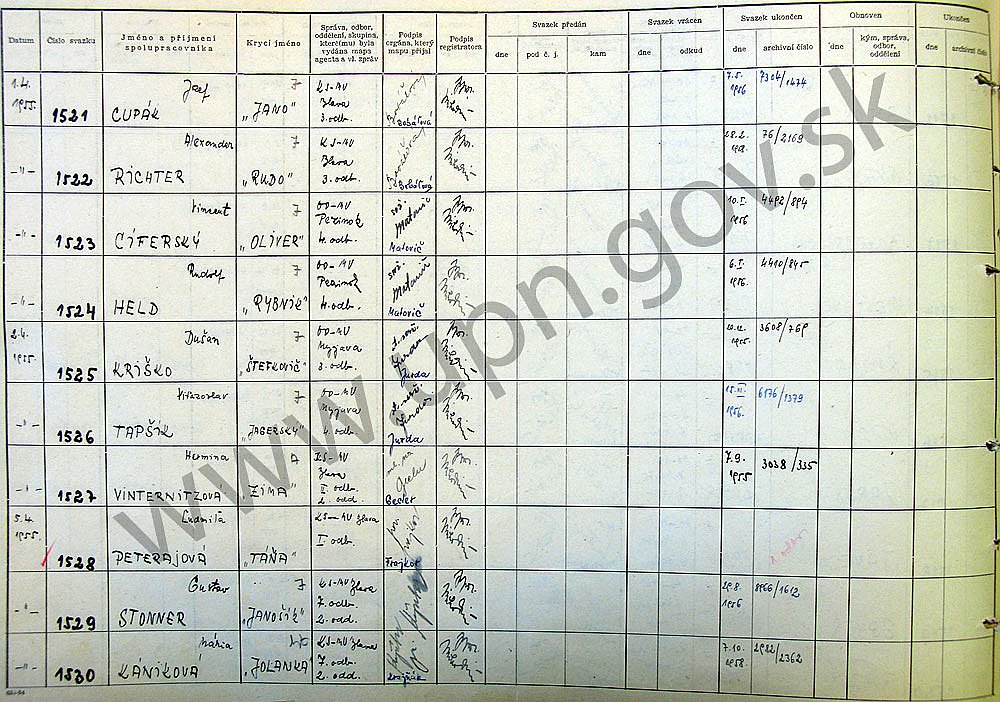 Datum
Číslo svazku
Jméno a příjmení
spolupracovníka
Krycí jméno
Správa, odbor,
oddělení, skupina,
které(mu) byla
vydána mapa
agenta a vl. zpráv
Podpis
orgána, který
mapu přijal
Podpis
registratora
Svazek předán
dne
pod č. j.
kam
Svazek vrácen
dne
odkud
Svazek ukončen
dne
archivní číslo
Obnoven
dne
kým, správa,
odbor,
oddělení
Ukončen
dne
archivní číslo
1.4.
1955.
1521
Jozef
CUPÁK
„JANO"
KS-AV
Ilava
3. odb.
7.5.
1956
7304/1474
-"-
1522
Alexander
RICHTER
„RUDO"
KS-AV
Ilava
3. odb.
28.2.
76/2169
-"-
1523
Vincent
CÍFERSKÝ
„OLIVER"
OO-AV
Pezinok
4. odb.
Matovič
Matovič
10.I.
1956
4492/894
-"-
1524
Rudolf
HELD
„RYBNIK"
OO-AV
Pezinok
4. odb.
Matovič
Matovič
6.I.
1956.
4410/845
2.4.
1955.
1525
Dušan
KRIŠKO
„ŠTEFKOVIČ"
OO-AV
Myjava
3. odb.
Jurda
Jurda
1955.
3608/769
-"-
1526
TAPŠÍK
„JAGERSKÝ"
OO-AV
Myjava
4. odb.
Jurda
15.VI.
1956.
6176/1379
-"-
1527
Hermina
VINTERNITZOVÁ
„ZIMA"
KS-AV
Ilava
II. odb.
2. odd.
7.9.
1955
3038/335
5.4.
1955.
1528
Ludmila
PETERAJOVÁ
„TÁŇA"
KS-AV Ilava
I odb.
Frajkor
-"-
1529
Gustav
STONNER
„JANOŠÍK"
KS-AV Ilava
7. odb.
2. odd.
29.8.
1956
8966/1612
-"-
1530
Mária
KÁNIKOVÁ
„JOLANKA"
KS-AV Ilava
7. odb.
2. odd.
7.10.
1958.
2922/2362
www.upn.gov.sk